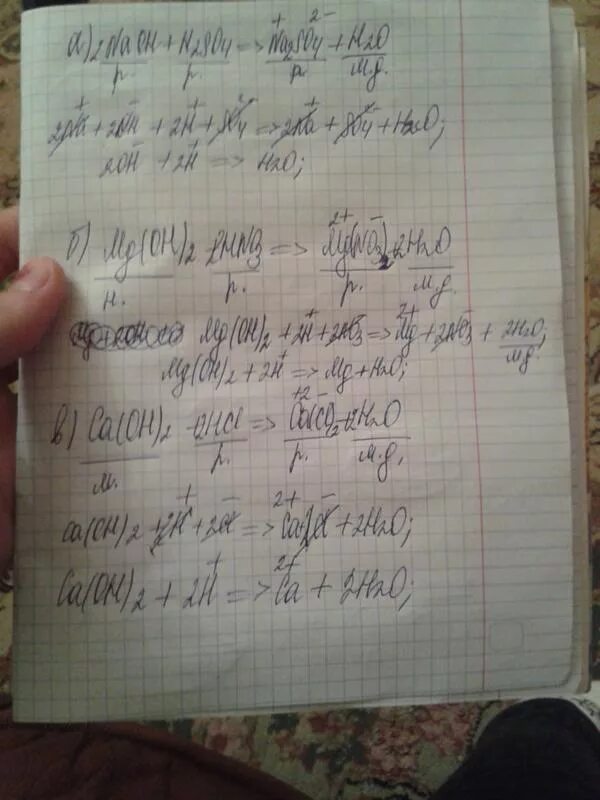 а) 2NaOH + H2SO4 => Na2⁺SO4²⁻ + H2O
р. р. р. м.д.
2Na⁺ + 2OH⁻ + 2H⁺ + SO4²⁻ => 2Na⁺ + SO4²⁻ + H2O;
2OH⁻ + 2H⁺ => H2O;
б) Mg(OH)2 + 2HNO3 => Mg²⁺(NO3)⁻2 + 2H2O
н. р. р. м.д.
Mg(OH)2 + 2H⁺ + 2NO3⁻ => Mg²⁺ + 2NO3⁻ + 2H2O;
м.д
Mg(OH)2 + 2H⁺ => Mg + H2O;
в) Ca(OH)2 + 2HCl => + 2H2O
м. р. р. м.д.
Ca(OH)2 + 2H⁺ + 2Cl⁻ => Ca²⁺ + 2Cl⁻ + 2H2O;
Ca(OH)2 + 2H⁺ => Ca²⁺ + 2H2O;